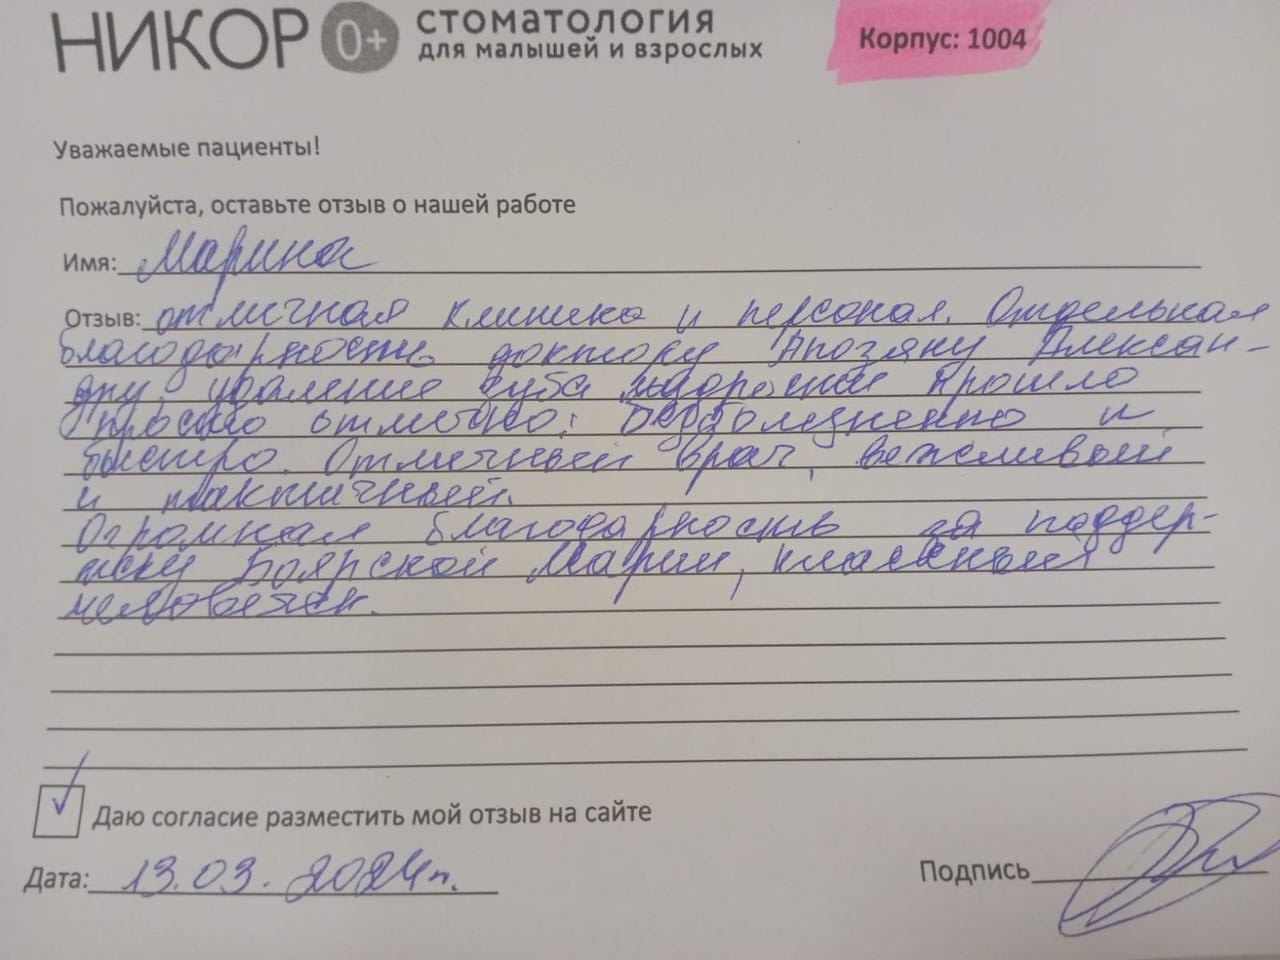 НИКОР 0+ СТОМАТОЛОГИЯ
для малышей и взрослых
Корпус: 1004
Уважаемые пациенты!
Пожалуйста, оставьте отзыв о нашей работе
Имя: Марина
Отзыв: отличная клиника и персонал. Отдельная
благодарность доктору Апозяну Алексан-
дру, удаление зуба мудрости прошло
просто отлично: безболезненно и
быстро. Отличный врач, вежливый
и тактичный.
Огромная благодарность за поддер-
жку Боярской Марии, классный
человечек.
Даю согласие разместить мой отзыв на сайте
Дата: 13.03.2024г.
Подпись